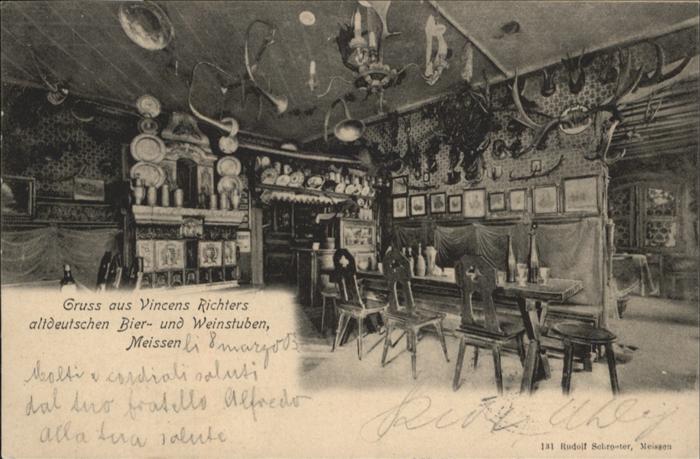 Gruss aus Vincens Richters
altdeutschen Bier- und Weinstuben,
Meissen li 8 marzo 03
Molti e cordiali saluti
dal tuo fratello Alfredo
alla tua salute
131 Rudolf Schroeter, Meissen